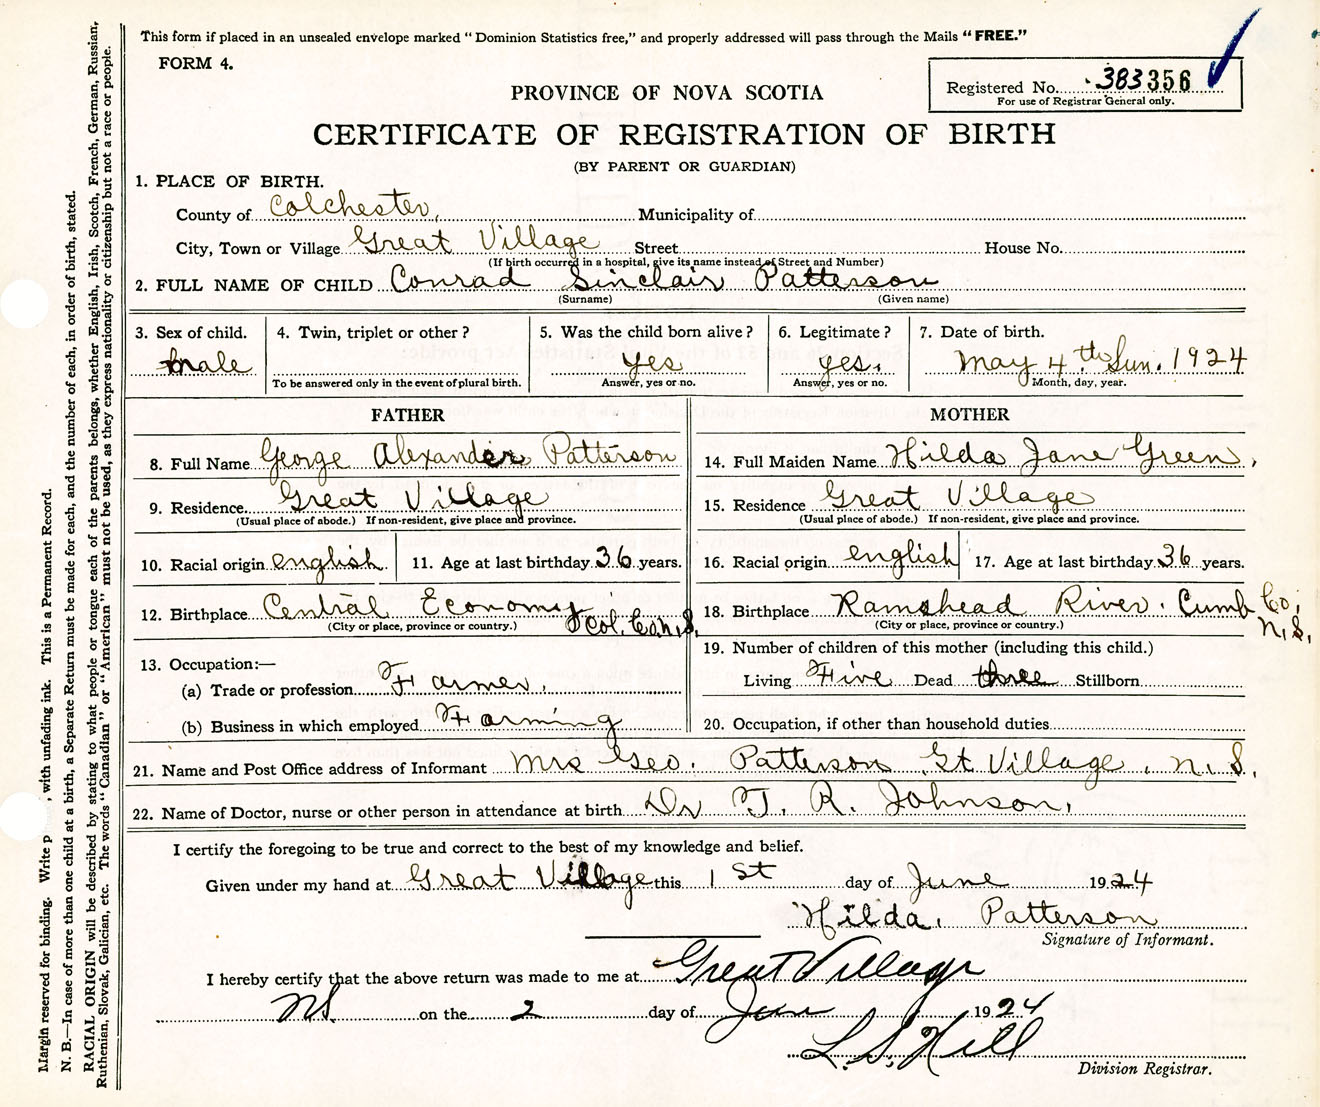 This form if placed in an unsealed envelope marked "Dominion Statistics free," and properly addressed will pass through the Mails "FREE."
FORM 4.
Registered No. 383356
For use of Registrar General only.
PROVINCE OF NOVA SCOTIA
CERTIFICATE OF REGISTRATION OF BIRTH
(BY PARENT OR GUARDIAN)
1. PLACE OF BIRTH.
County of Colchester, Municipality of
City, Town or Village Great Village Street House No.
(If birth occurred in a hospital, give its name instead of Street and Number)
2. FULL NAME OF CHILD Conrad Sinclair Patterson
(Surname) (Given name)
3. Sex of child. 4. Twin, triplet or other? 5. Was the child born alive? 6. Legitimate? 7. Date of birth.
male yes yes. May 4th Sun. 1924
To be answered only in the event of plural birth. Answer, yes or no. Answer, yes or no. Month, day, year.
FATHER
8. Full Name George Alexander Patterson
9. Residence Great Village
(Usual place of abode.) If non-resident, give place and province.
10. Racial origin english 11. Age at last birthday 36 years.
12. Birthplace Central Economy
Col. Co. N.S.
(City or place, province or country.)
13. Occupation:—
(a) Trade or profession Farmer.
(b) Business in which employed Farming
MOTHER
14. Full Maiden Name Hilda Jane Green,
15. Residence Great Village
(Usual place of abode.) If non-resident, give place and province.
16. Racial origin english 17. Age at last birthday 36 years.
18. Birthplace Ramshead River. Cumb Co,
N.S.
(City or place, province or country.)
19. Number of children of this mother (including this child.)
Living Five Dead three Stillborn
20. Occupation, if other than household duties
21. Name and Post Office address of Informant Mrs Geo. Patterson Gt Village, N.S.
22. Name of Doctor, nurse or other person in attendance at birth Dr T. R. Johnson,
I certify the foregoing to be true and correct to the best of my knowledge and belief.
Given under my hand at Great Village this 1 st day of June 1924
Hilda. Patterson
Signature of Informant.
I hereby certify that the above return was made to me at Great Village
NS. on the 2 day of Jun 1924
L. S. Hill
Division Registrar.
Margin reserved for binding. Write p , with unfading ink. This is a Permanent Record.
N. B.—In case of more than one child at a birth, a Separate Return must be made for each, and the number of each, in order of birth, stated.
RACIAL ORIGIN will be described by stating to what people or tongue each of the parents belongs, whether English, Irish, Scotch, French, German, Russian,
Ruthenian, Slovak, Galician, etc. The words "Canadian" or "American" must not be used, as they express nationality or citizenship but not a race or people.